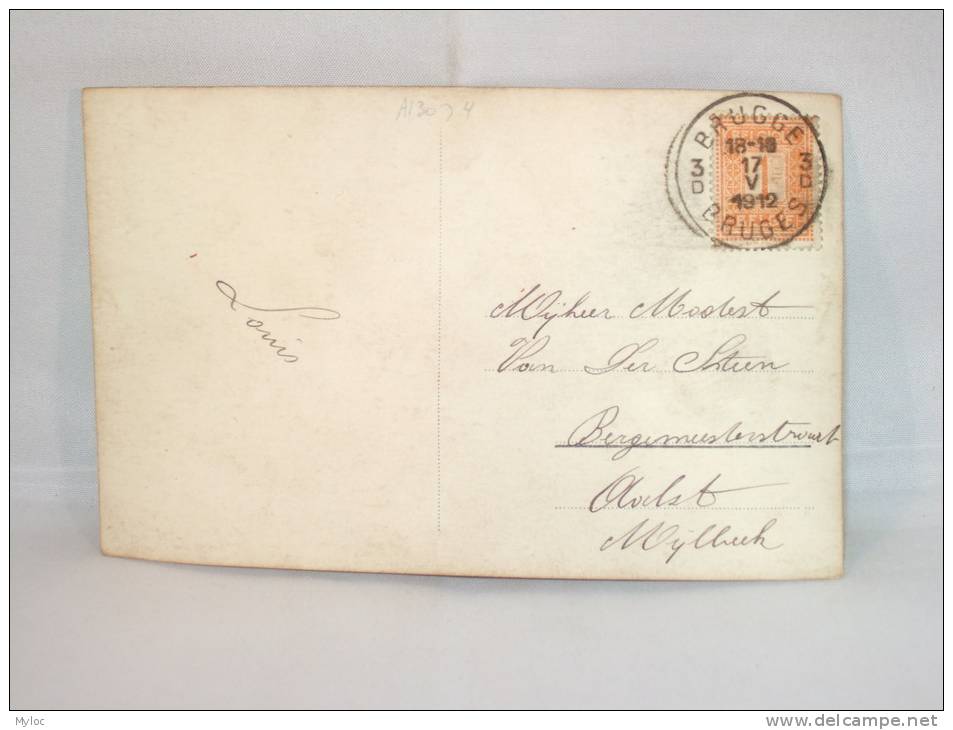 A130
BRUGGE
18-19
3 17 3
D V D
1912
BRUGES
1
Louis
Mijheer Modest
Van Der Steen
Bergemeesterstraat
Aalst
Mijlbeek
Myloc
www.delcampe.net